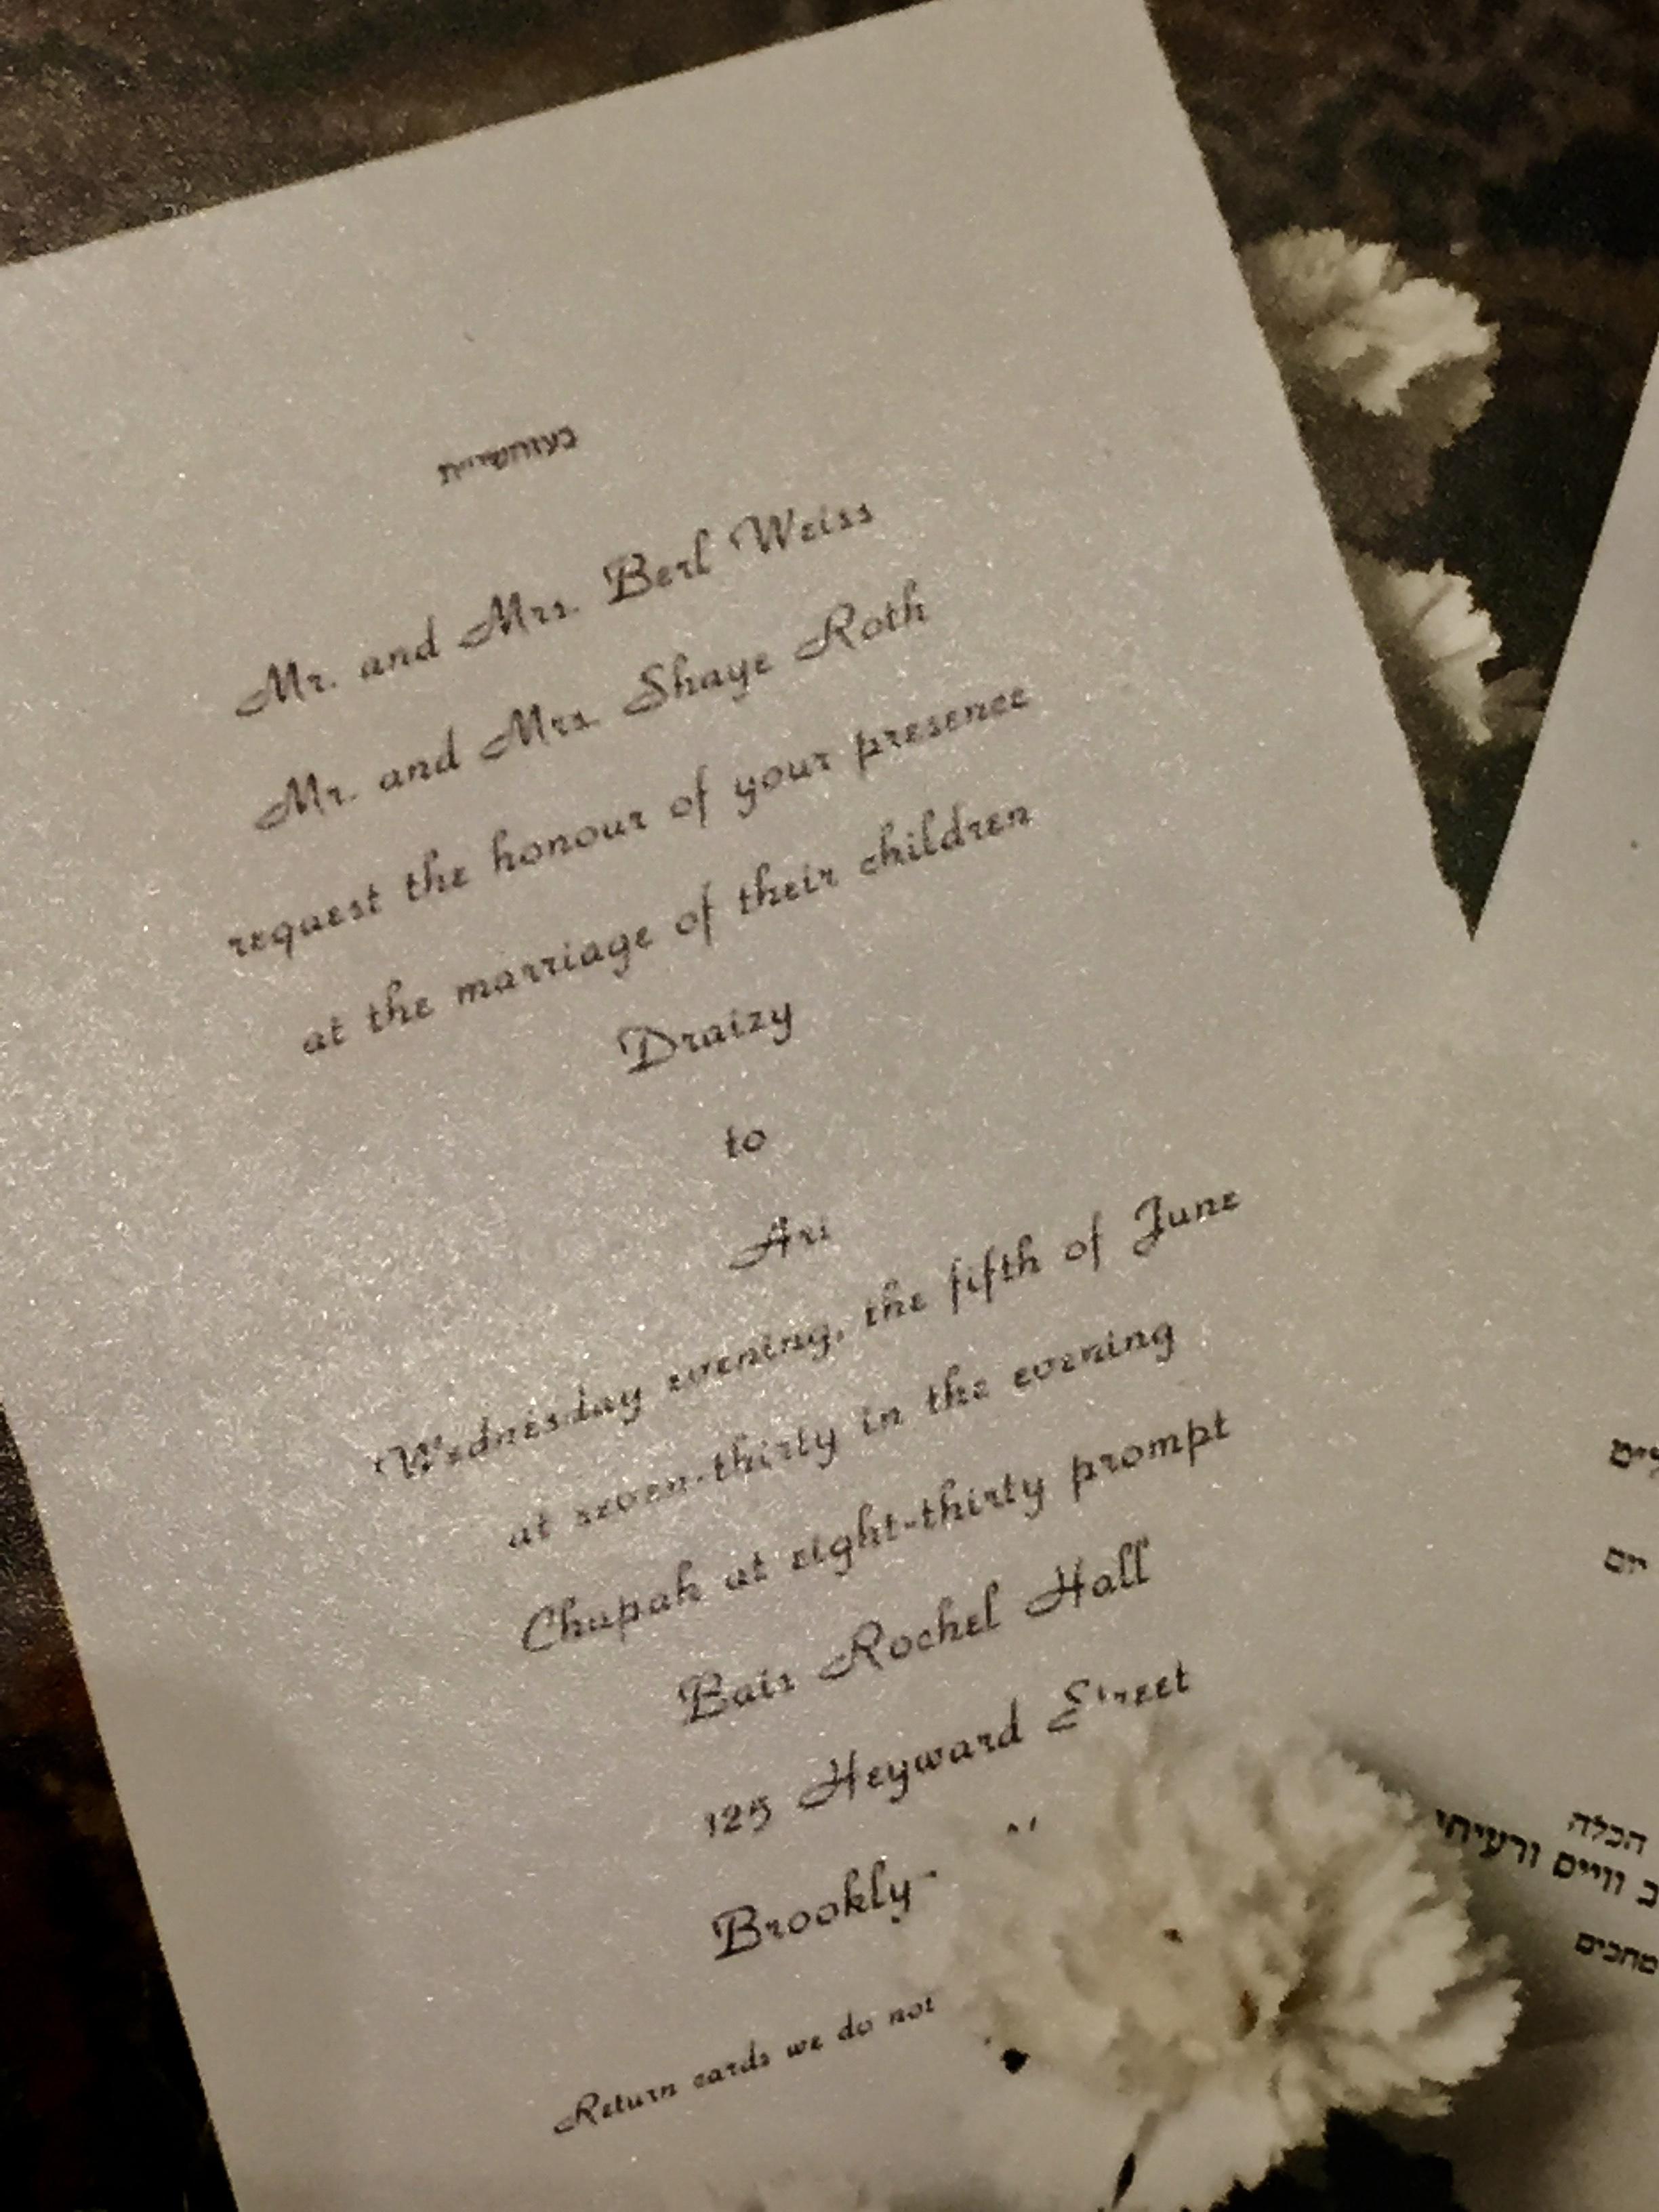 Mr. and Mrs. Berl Weiss
Mr. and Mrs. Shaye Roth
request the honour of your presence
at the marriage of their children
Draizy
to
Ari
Wednesday evening, the fifth of June
at seven-thirty in the evening
Chupah at eight-thirty prompt
Bais Rochel Hall
125 Heyward Street
Return cards we do not
הכלה
וויים ורעיתי